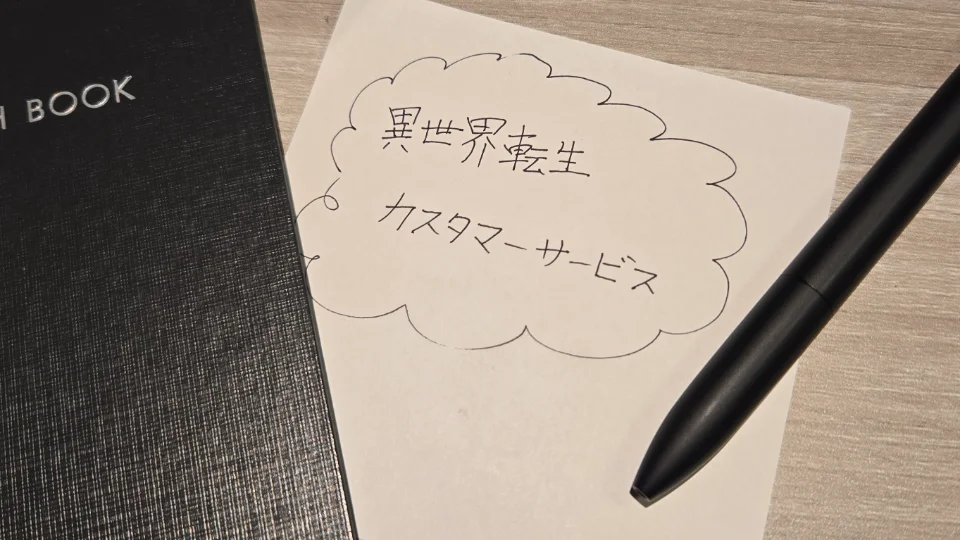 BOOK
異世界転生
カスタマーサービス